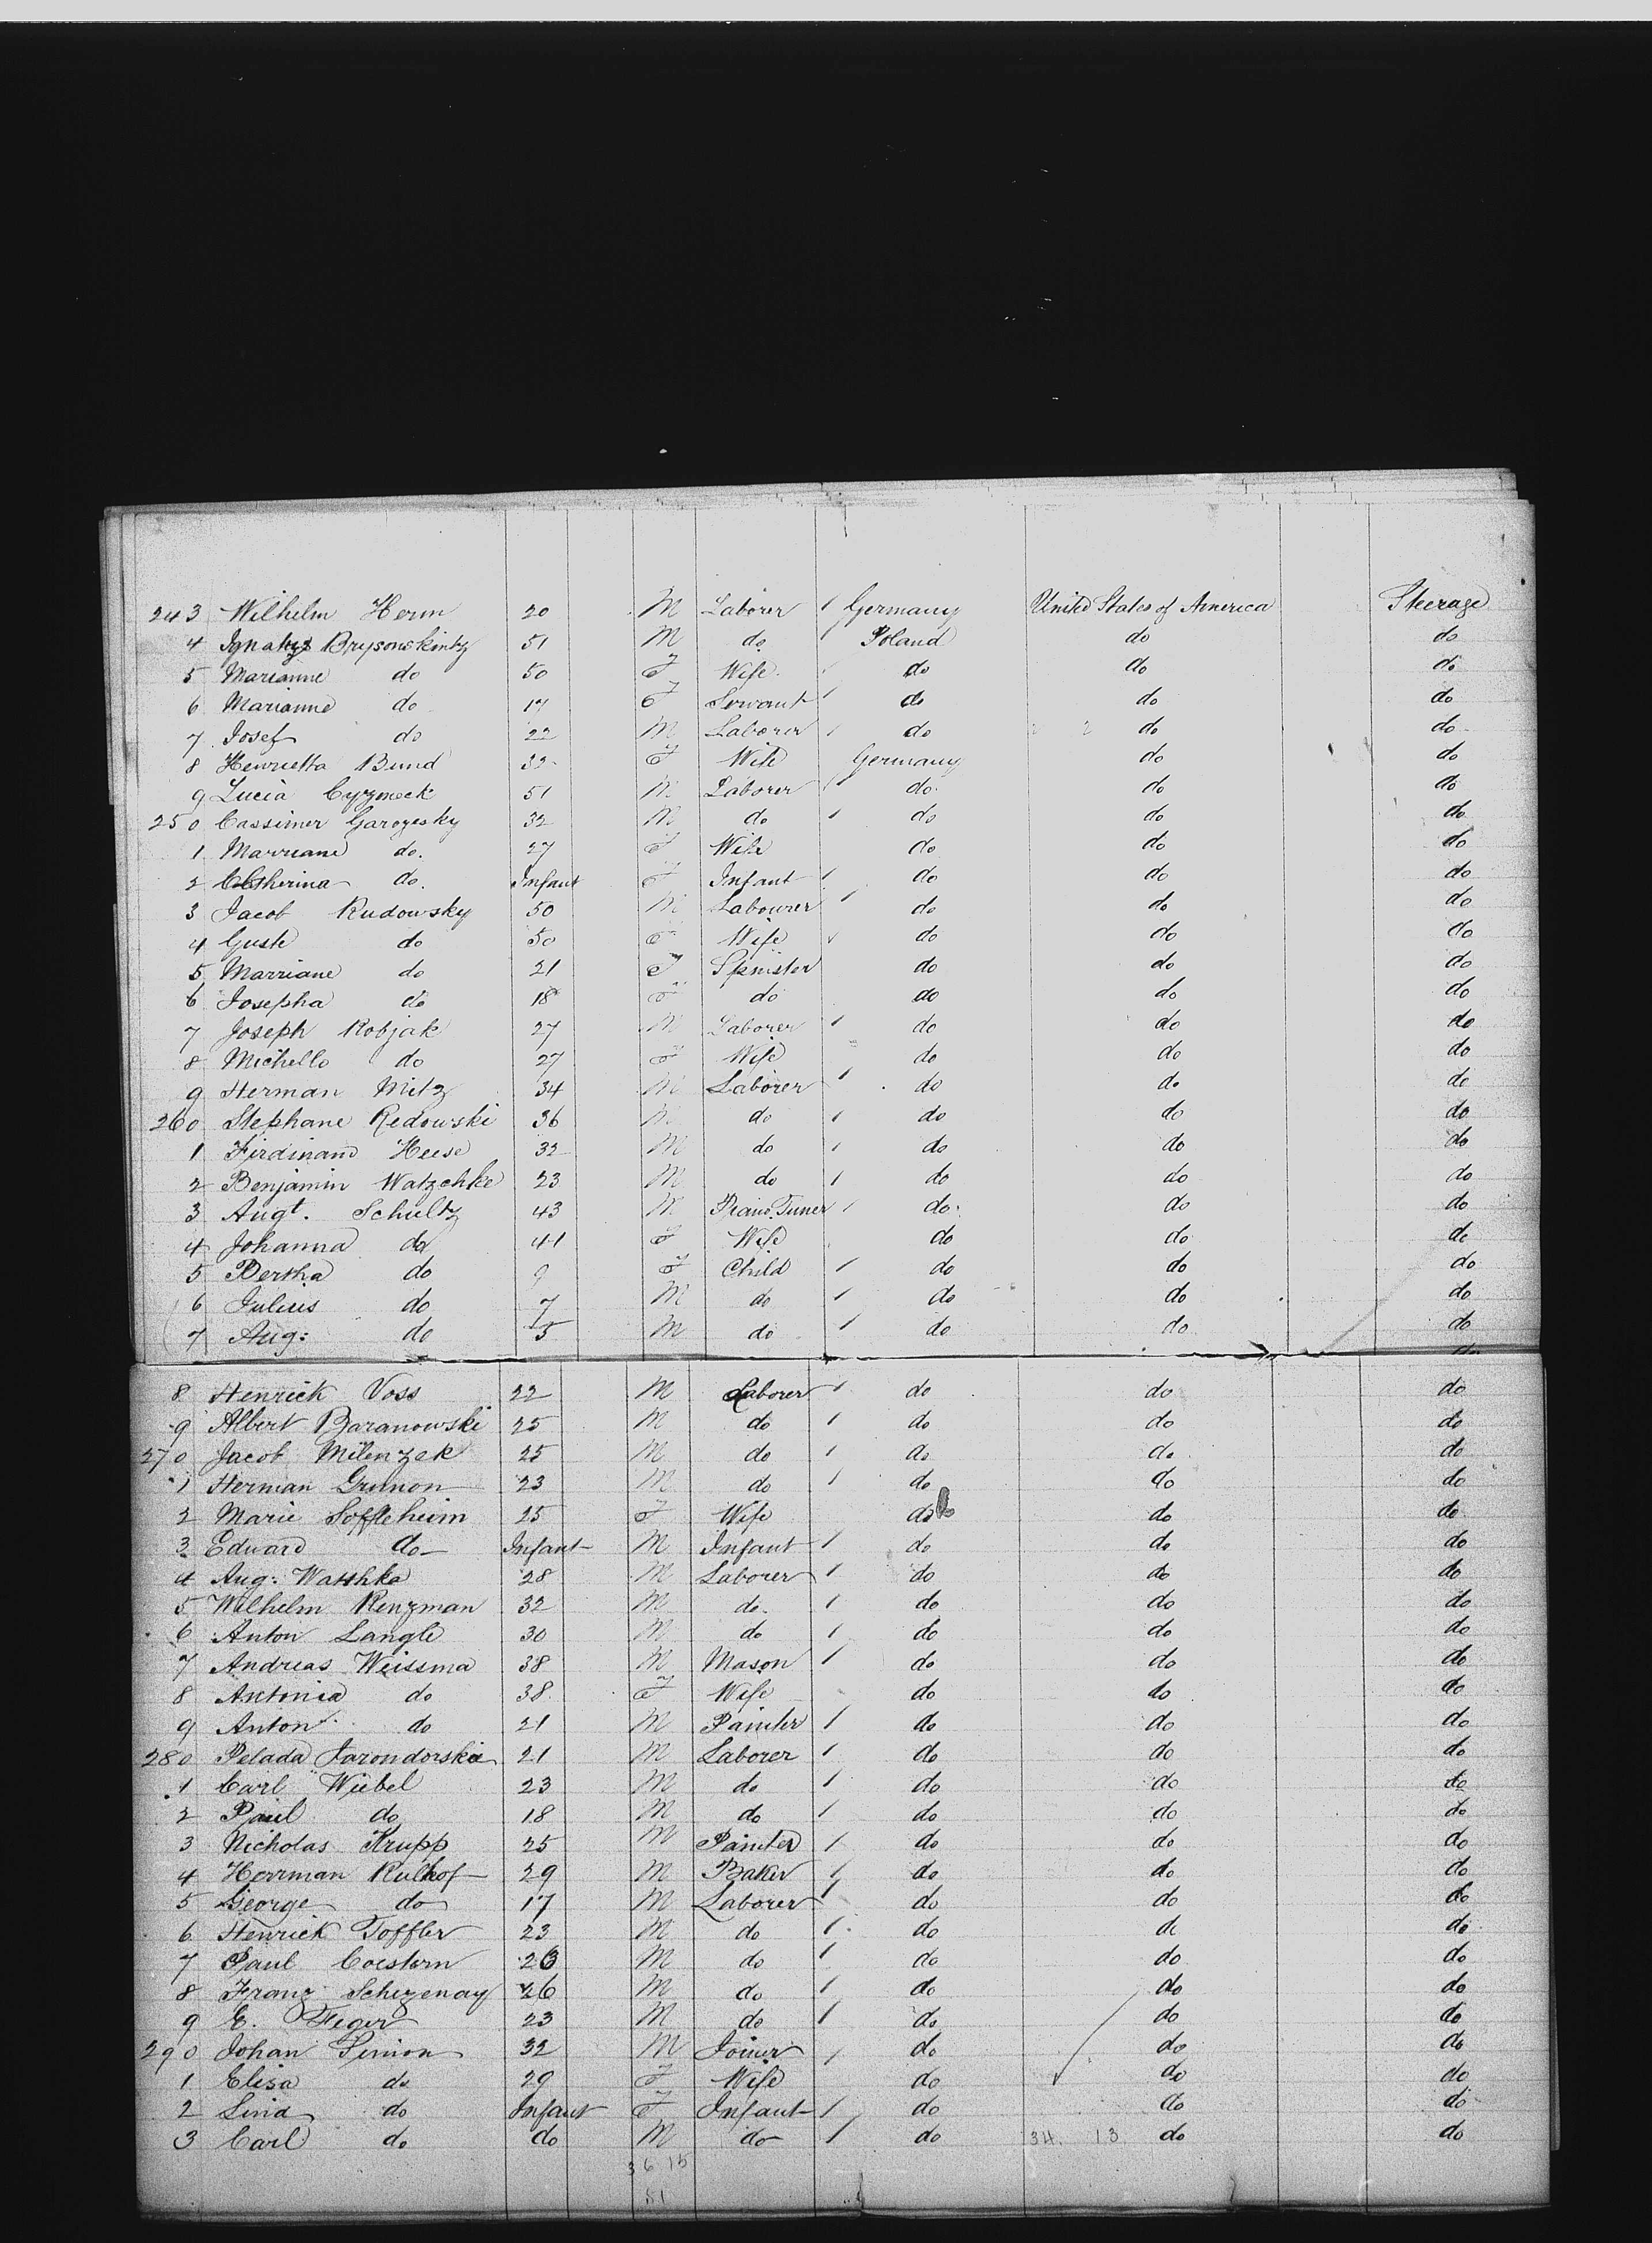 243 Wilhelm Herm 20 M Laborer 1 Germany United States of America Steerage
4 Ignatz Brysowskintz 51 M do 1 Poland do do
5 Marianne do 50 F Wife do do do
6 Marianne do 17 F Servant 1 do do do
7 Josef do 22 M Laborer 1 do do do
8 Henrietta Bund 32 F Wife Germany do do
9 Lucia Cyzmeck 51 M Laborer 1 do do do
250 Cassimer Garozesky 32 M do 1 do do do
1 Marriane do. 27 F Wife do do do
2 Catherina do. Infant F Infant 1 do do do
3 Jacob Rudowsky 50 M Labourer 1 do do do
4 Guste do 50 F Wife do do do
5 Marriane do 21 F Spinister do do do
6 Josepha do 18 F do do do do
7 Joseph Robjak 27 M Laborer 1 do do do
8 Michello do 27 F Wife do do do
9 Herman Mitz 34 M Laborer 1 do do do
260 Stephane Redowski 36 M do 1 do do do
1 Firdinand Heese 32 M do 1 do do do
2 Benjamin Watzchke 23 M do 1 do do do
3 Augt. Schultz 43 M Piano Tuner 1 do do do
4 Johanna do 41 F Wife do do do
5 Bertha do 9 F Child 1 do do do
6 Julius do 7 M do 1 do do do
7 Aug: do 5 M do 1 do do do
8 Henrick Voss 22 M Laborer 1 do do do
9 Albert Baranowski 25 M do 1 do do do
270 Jacob Milenzek 25 M do 1 do do do
1 Herman Grunon 23 M do 1 do do do
2 Marie Soffleheim 25 F Wife do do do
3 Eduard do Infant M Infant 1 do do do
4 Aug: Watthke 28 M Laborer 1 do do do
5 Wilhelm Renzman 32 M do. 1 do do do
6 Anton Langle 30 M do 1 do do do
7 Andreas Weissma 38 M Mason 1 do do do
8 Antonia do 38 F Wife do do do
9 Anton do 21 M Painter 1 do do do
280 Pelada Jarondorskie 21 M Laborer 1 do do do
1 Carl Wiebel 23 M do 1 do do do
2 Paul do 18 M do 1 do do do
3 Nicholas Krupp 25 M Painter 1 do do do
4 Herrman Kulhof 29 M Baker 1 do do do
5 George do 17 M Laborer 1 do do do
6 Henrick Toffler 23 M do 1 do do do
7 Paul Coestern 26 M do 1 do do do
8 Franz Schezenay 26 M do 1 do do do
9 E. Feger 23 M do 1 do do do
290 Johan Simon 32 M Joiner 1 do do do
1 Elisa do 29 F Wife do do do
2 Lina do Infant F Infant 1 do do do
3 Carl do do M do 1 do 34. 13 do do
36 15
51